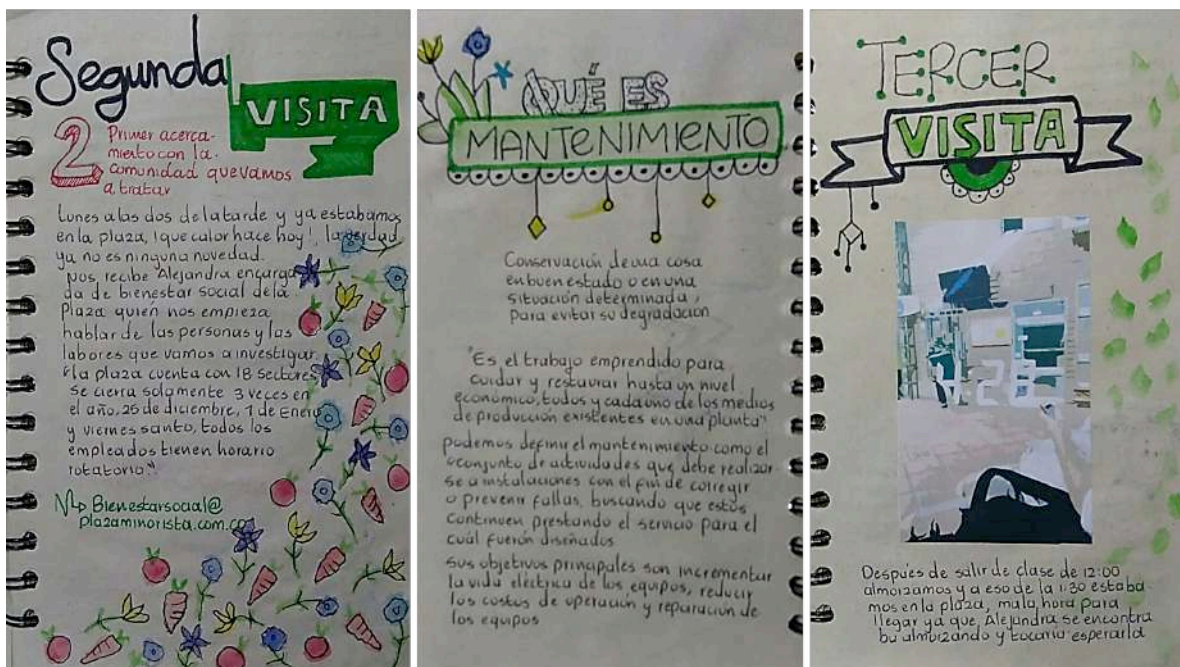 Segunda
VISITA
2
Primer acerca-
miento con la
comunidad que vamos
a tratar
Lunes a las dos de la tarde y ya estabamos
en la plaza, ¡que calor hace hoy!, la verdad
ya no es ninguna novedad.
Nos recibe Alejandra encarga
da de bienestar social de la
Plaza quién nos empieza
hablar de las personas y las
labores que vamos a investigar
"la plaza cuenta con 18 sectores
Se cierra solamente 3 veces en
el año, 25 de diciembre, 1 de Enero
y viernes santo, todos los
empleados tienen horario
rotatorio."
Bienestarsocial@
plazaminorista.com.co
QUÉ ES
MANTENIMIENTO
Conservación de una cosa
en buen estado o en una
situación determinada,
para evitar su degradación
"Es el trabajo emprendido para
cuidar y restaurar hasta un nivel
económico, todos y cada uno de los medios
de producción existentes en una planta"
podemos definir el mantenimiento como el
"conjunto de actividades que debe realizar
se a instalaciones con el fin de corregir
o prevenir fallas, buscando que estos
continuen prestando el servicio para el
cuál fuerón diseñados
sus objetivos principales son incrementar
la vida eléctrica de los equipos, reducir
los costos de operación y reparación de
los equipos
TERCER
VISITA
Después de salir de clase de 12:00
almorzamos y a eso de la 1:30 estaba-
mos en la plaza, mala hora para
llegar ya que, Alejandra se encontra
ba almorzando y tocaría esperarla